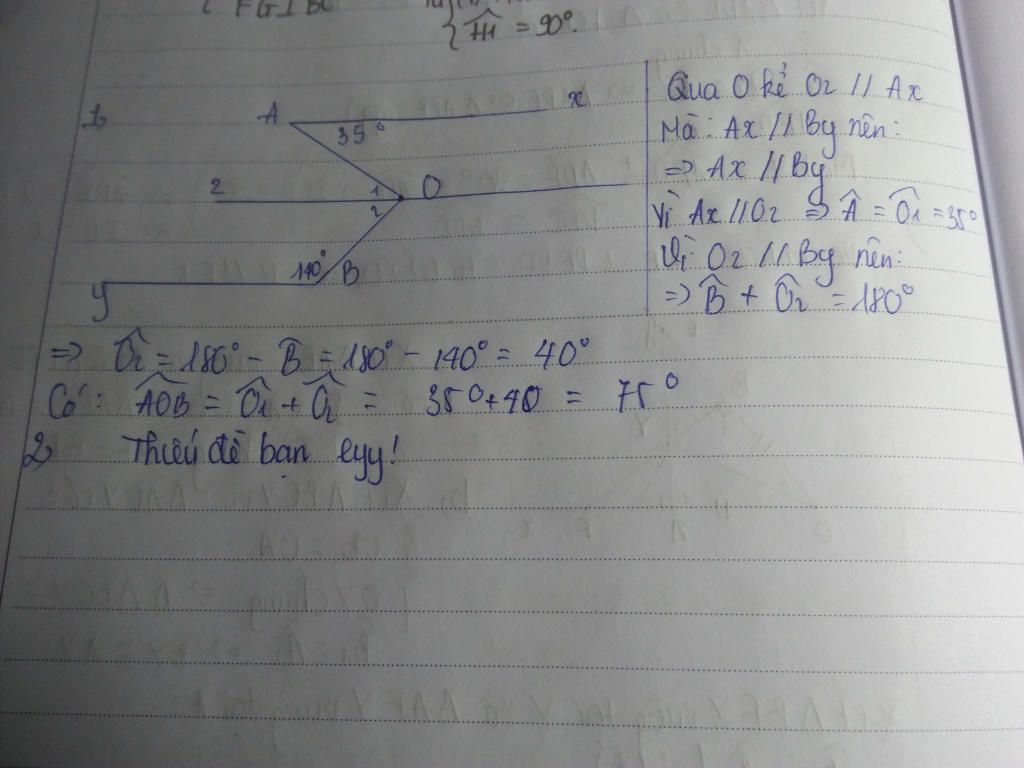 FGIBC
{ Ĥ1 = 90°.
1,
A
x
35°
2
1
O
2
140°
B
y
Qua O kẻ Oz // Ax
Mà: Ax // By nên:
=> Ax // By
Vì Ax // Oz => Â = Ô1 = 35°
Vì Oz // By nên:
=> B̂ + Ô2 = 180°
=> Ô2 = 180° - B̂ = 180° - 140° = 40°
Có: AÔB = Ô1 + Ô2 = 35° + 40 = 75°
2, Thiếu đề bạn eyy!